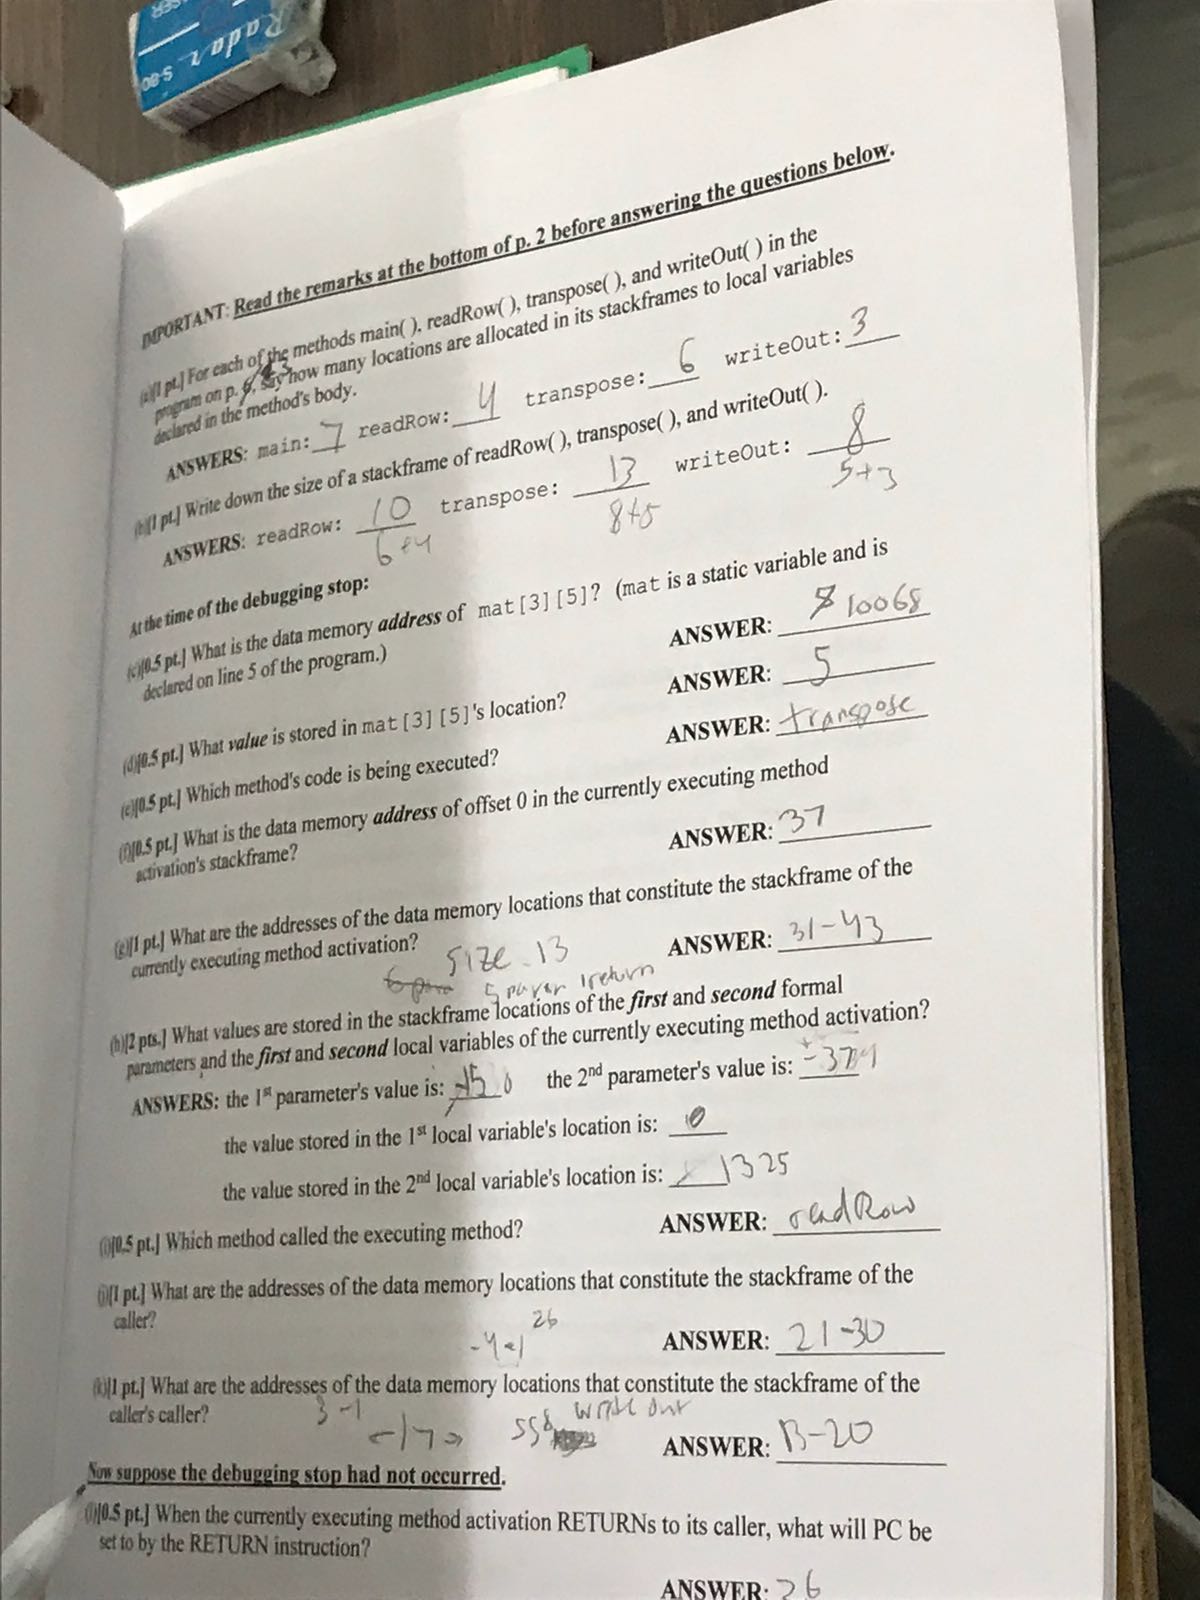 Radar
S-80
IMPORTANT: Read the remarks at the bottom of p. 2 before answering the questions below.
(a)[1 pt.] For each of the methods main( ), readRow( ), transpose( ), and writeOut( ) in the
program on p. say how many locations are allocated in its stackframes to local variables
declared in the method's body.
ANSWERS: main: 7 readRow: 4 transpose: 6 writeOut: 3
(b)[1 pt.] Write down the size of a stackframe of readRow( ), transpose( ), and writeOut( ).
ANSWERS: readRow: 10 transpose: 13 writeOut: 8
6+4 8+5 5+3
At the time of the debugging stop:
(c)[0.5 pt.] What is the data memory address of mat[3][5]? (mat is a static variable and is
declared on line 5 of the program.)
ANSWER: 10068
(d)[0.5 pt.] What value is stored in mat[3][5]'s location? ANSWER: 5
(e)[0.5 pt.] Which method's code is being executed? ANSWER: transpose
(f)[0.5 pt.] What is the data memory address of offset 0 in the currently executing method
activation's stackframe? ANSWER: 37
(g)[1 pt.] What are the addresses of the data memory locations that constitute the stackframe of the
currently executing method activation? size 13 ANSWER: 31-43
5 1 return
(h)[2 pts.] What values are stored in the stackframe locations of the first and second formal
parameters and the first and second local variables of the currently executing method activation?
ANSWERS: the 1st parameter's value is: the 2nd parameter's value is:
the value stored in the 1st local variable's location is:
the value stored in the 2nd local variable's location is: 1325
(i)[0.5 pt.] Which method called the executing method? ANSWER: readRow
(j)[1 pt.] What are the addresses of the data memory locations that constitute the stackframe of the
caller? 26 ANSWER: 21-30
(k)[1 pt.] What are the addresses of the data memory locations that constitute the stackframe of the
caller's caller? 3-1 write out ANSWER: 13-20
Now suppose the debugging stop had not occurred.
(l)[0.5 pt.] When the currently executing method activation RETURNs to its caller, what will PC be
set to by the RETURN instruction?
ANSWER: 26